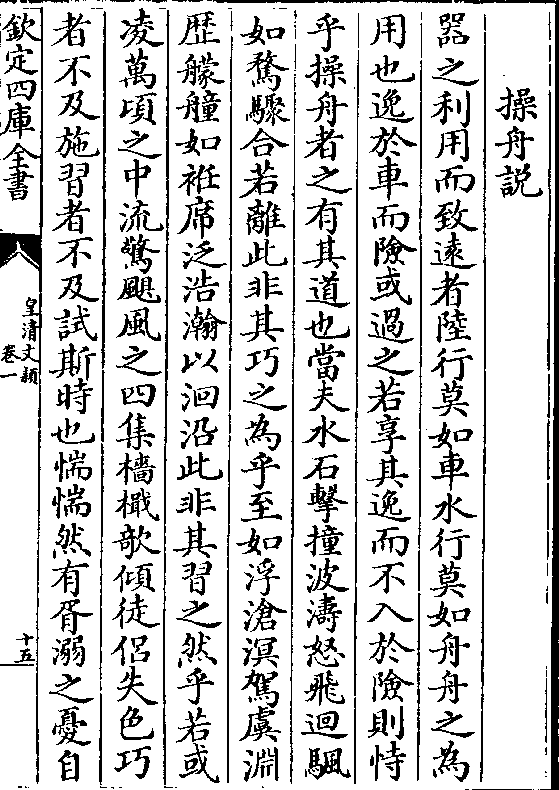 操舟説
器之利用而致遠者陸行莫如車水行莫如舟舟之為
用也逸於車而險或過之若享其逸而不入於險則恃
乎操舟者之有其道也當夫水石擊撞波濤怒飛迴颿
如騖驟合若離此非其巧之為乎至如浮滄溟駕虞淵
歴艨艟如袵席泛浩瀚以洄沿此非其習之然乎若或
凌萬頃之中流驚颶風之四集檣檝欹傾徒侶失色巧
者不及施習者不及試斯時也惴惴然有胥溺之憂自
欽定四庫全書
皇清文穎
卷一
十五